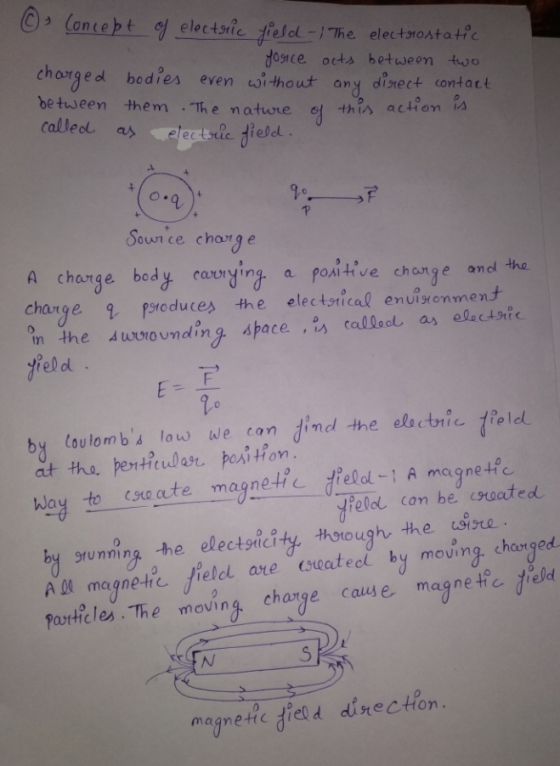 C) → Concept of electric field -: The electrostatic
force acts between two
charged bodies even without any direct contact
between them. The nature of this action is
called as electric field.
O.q
q₀
P
F⃗
Source charge
A charge body carrying a positive charge and the
charge q produces the electrical environment
in the surrounding space, is called as electric
field.
E = F⃗/q₀
by Coulomb's law we can find the electric field
at the perticular position.
Way to create magnetic field -: A magnetic
field can be created
by running the electricity through the wire.
All magnetic field are created by moving charged
particles. The moving charge cause magnetic field
N S
magnetic field direction.